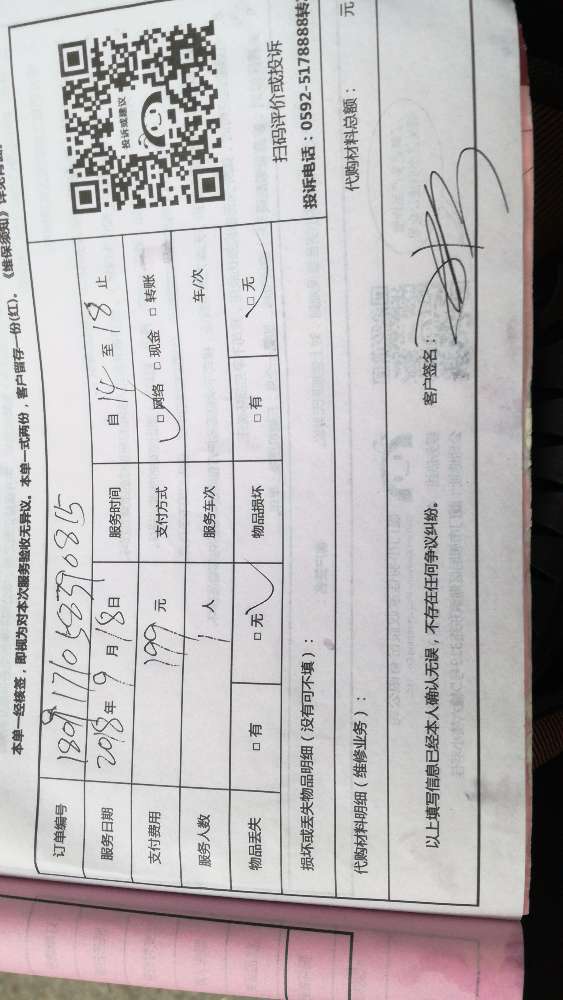 本单一经核签，即视为对本次服务验收无异议。本单一式两份，客户留存一份(红)。《维保须知》
订单编号
服务日期 2018年9月18日 服务时间 自14至18止
支付费用 199元 支付方式 □网络 □现金 □转账
服务人数 1人 服务车次 车/次
物品丢失 □有 □无 物品损坏 □有 □无
投诉或建议
扫码评价或投诉
投诉电话：0592-5178888转
损坏或丢失物品明细（没有可不填）：
代购材料明细（维修业务）： 代购材料总额： 元
以上填写信息已经本人确认无误，不存在任何争议纠纷。 客户签名：